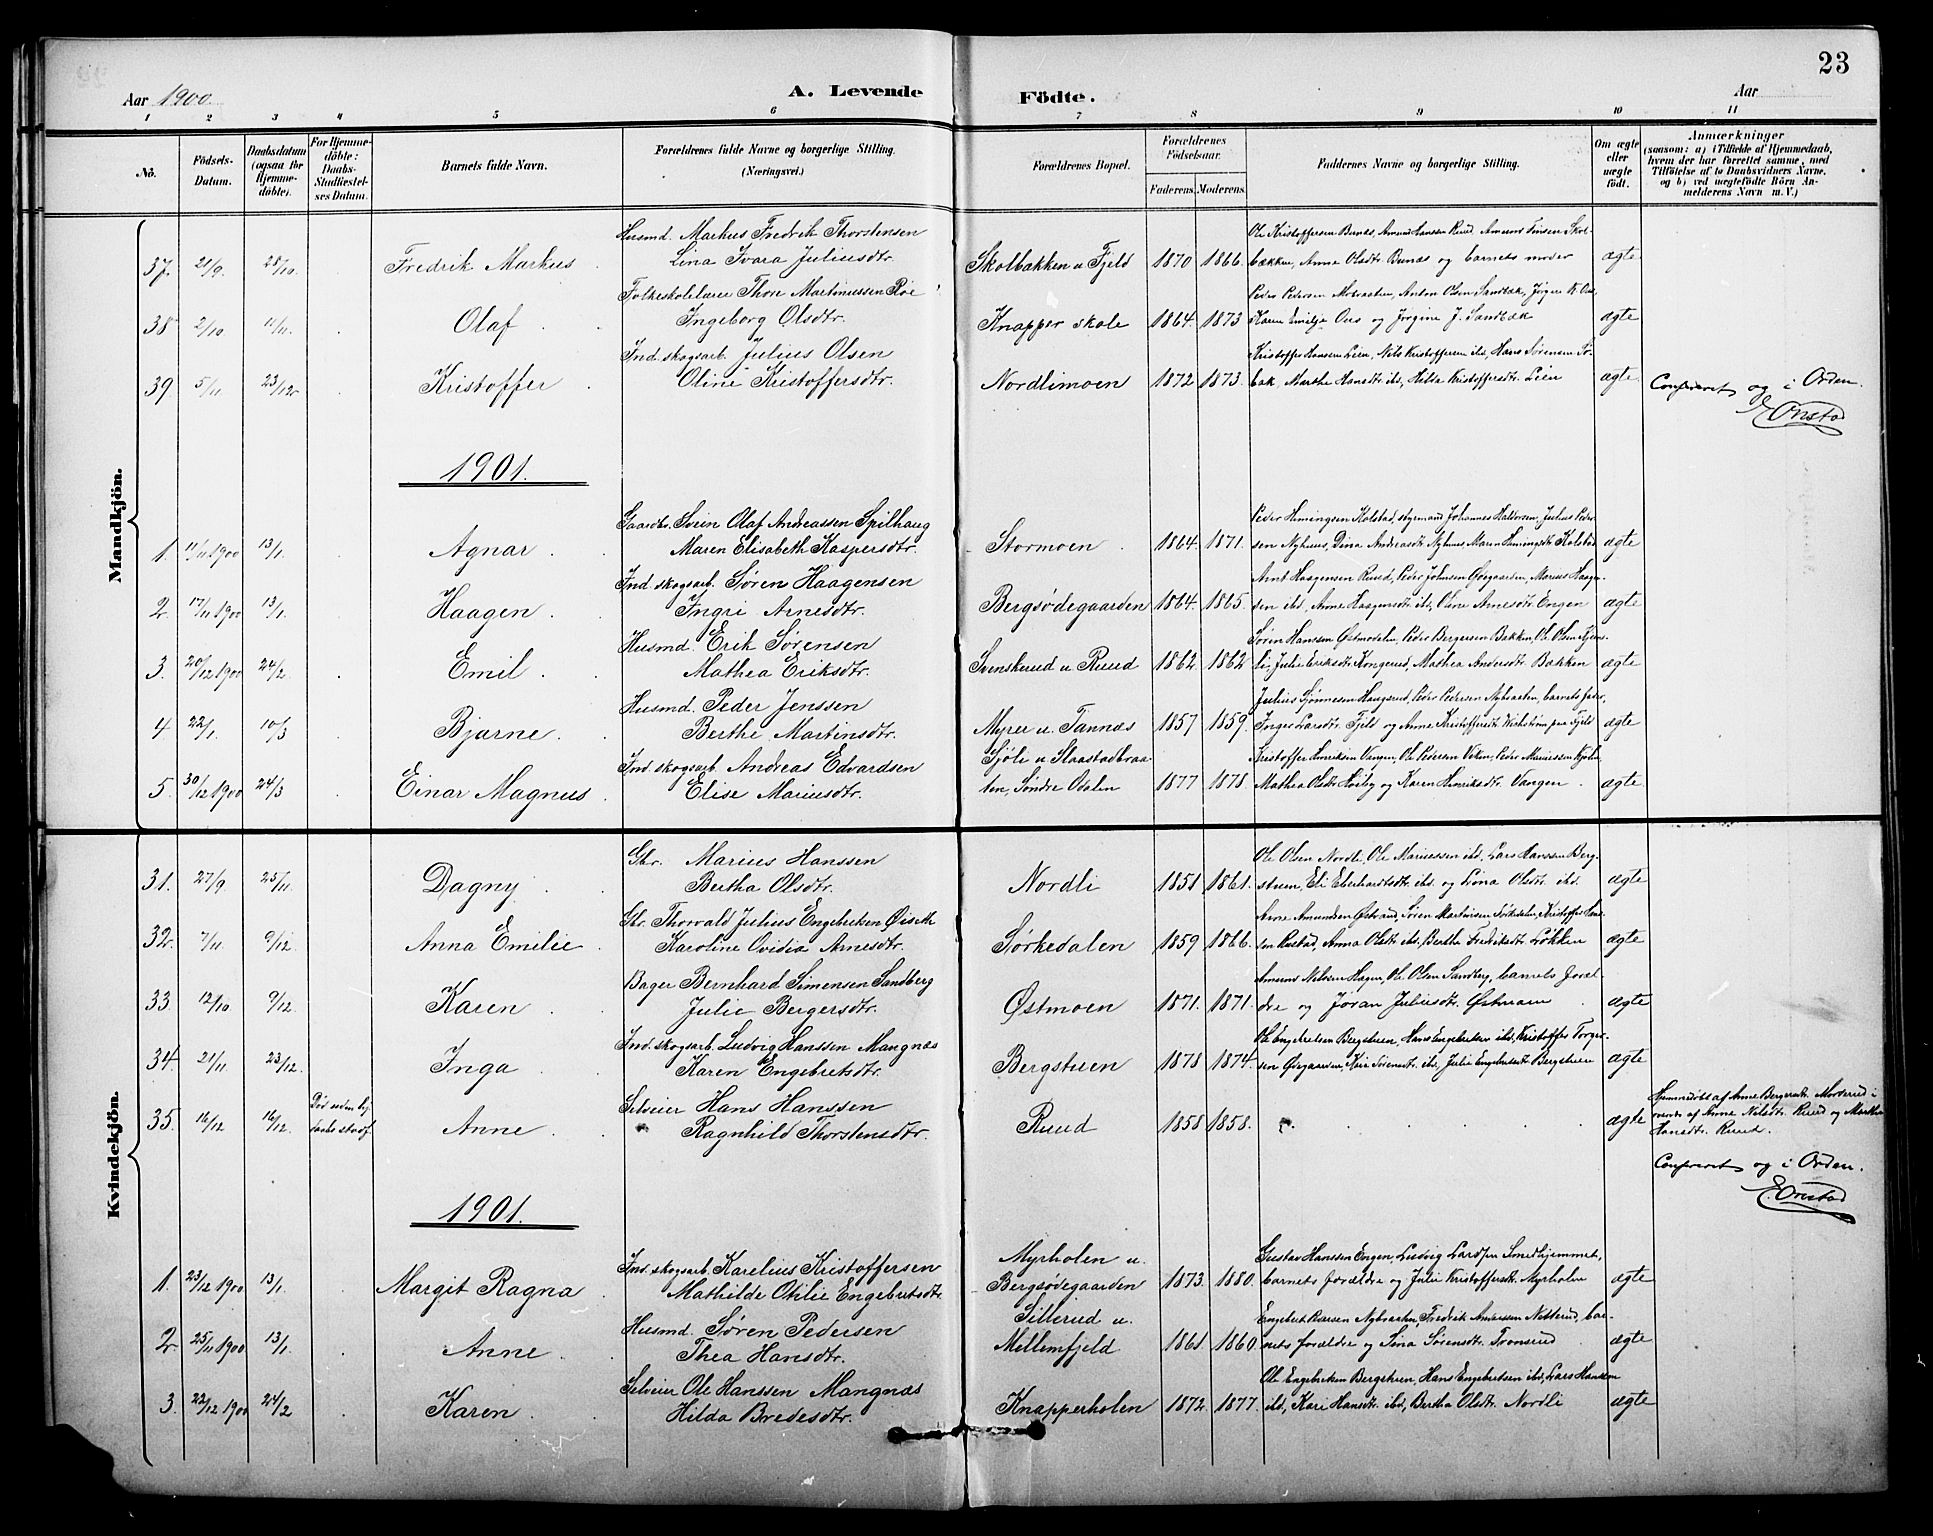 23
Aar 1900. A. Levende Födte. Aar
1 2 3 4 5 6 7 8 9 10 11
No. Födsels-Datum. Daabsdatum (ogsaa for Hjemme-döbte). For Hjemme-döbte: Daabs-Stadfæstel-ses Datum. Barnets fulde Navn. Forældrenes fulde Navne og borgerlige Stilling. (Næringsvei.) Forældrenes Bopæl. Forældrenes Födselsaar. Faderens. Moderens. Faddernes Navne og borgerlige Stilling. Om ægte eller uægte födt. Anmærkninger (saasom: a) i Tilfælde af Hjemmedaab, hvem der har forrettet samme, med Tilföielse af to Daabsvidners Navne, og b) ved uægtefödte Börn Anmelderens Navn m. V.)
Mandkjön.
Husmd. Markus Fredrik Thorstensen Ole Kristoffersen Bunæs, Amund Hanssen Ruud, Amund Simsen Skol-
37. 21/9. 28/10. Fredrik Markus Lina Ivara Juliusdtr. Skolbakken u. Fjeld 1870 1866. bakken, Anne Olsdtr. Bunæs og barnets moder ægte
Folkeskolelærer Thore Martinussen Röe Peder Pedersen Mobraaten, Anton Olsen Sandbæk, Jørgen K. Ous,
38 2/10. 11/11. Olaf Ingeborg Olsdtr. Knapper skole 1864. 1873 Karen Emilje Ous og Jorgine J. Sandbæk ægte
Ind. skogsarb. Julius Olsen Kristoffer Hansen Lien, Nils Kristoffersen ibd, Hans Sørensen Fo-
39. 5/11 23/12 Kristoffer Oline Kristoffersdtr. Nordlimoen 1872 1873. bak, Marthe Hansdtr. ibd, Hilda Kristoffersdtr. Lien ægte Confereret og i Orden.
E Onstad
1901.
Gaardbr. Svein Olaf Andreassen Spilhaug Peder Hemingsen Kolstad, styrmand Johannes Haldorsen, Julius Peder-
1. 11/11 1900 13/1. Agnar Maren Elisabeth Kaspersdtr. Stormoen 1864 1871. sen Nyhuus, Dina Andreasdtr. Nyhuus, Maren Hemingsdtr. Kolstad ægte
Ind. skogsarb. Søren Haagensen Arnt Haagensen Ruud, Peder Johnsen Øiegaarden, Marius Haagen-
2. 17/11 1900 13/1. Haagen Ingri Arnesdtr. Bergsødegaarden 1864. 1865. sen ibd, Anne Haagensdtr. ibd, Oline Arnesdtr. Engen ægte
Husmd. Erik Sørensen Søren Hanssen Østmodalen, Peder Bergersen Bakken, Ole Olsen Fjeis-
3. 20/12 1900 24/2. Emil Mathea Eriksdtr. Svenskerud u. Ruud 1862. 1862 li, Julie Eriksdtr. Kongerud, Mathea Andersdtr. Bakken ægte
Husmd. Peder Jenssen Julius Sjønnesen Haugsrud, Peder Pedersen Nybraaten, barnets fader,
4 22/1. 10/3 Bjarne Berthe Martinsdtr. Myrer u. Tannæs 1857 1859. Inger Larsdtr. Fjeld og Anne Kristoffersdtr. fra Fjeld ægte
Ind. skogsarb. Andreas Edvardsen Sjøli u. Staastadbraa- Kristoffer Henriksen Vangen, Ole Pedersen Viken, Peder Mariussen Kjølen,
5. 30/12 1900 24/3 Einar Magnus. Elise Mariusdtr. ten, Søndre Odalen 1877 1878. Mathea Olsdtr. Høiby og Karen Henriksdtr. Vangen. ægte
Kvindekjön.
Gbr. Marius Hanssen Ole Olsen Nordli, Ole Mariussen ibd, Lars Hanssen Berg-
31. 27/9 25/11. Dagny Bertha Olsdtr. Nordli 1858 1861. stuen, Eli Eberhardtsdtr. ibd og Lina Olsdtr. ibd. ægte
Gbr. Thorvald Julius Engebretsen Øiseth Arne Amundsen Østraad, Søren Martinsen Sørkedalen, Kristoffer Han-
32. 7/11. 9/12 Anna Emilie Karoline Ovidia Arnesdtr. Sørkedalen 1859 1866. sen Rustad, Anna Olsdtr. ibd, Bertha Fredriksdtr. Løkken ægte
Bager Bernhard Simensen Sandberg Amund Nilssen Hagen, Ole Olsen Sandberg, barnets foræl-
33. 12/10 9/12. Karen Julie Bergersdtr. Østmoen 1871. 1871. dre og Jøran Juliusdtr. Østmoen ægte
Ind. skogsarb. Ludvig Hanssen Mangnæs Ole Engebretsen Bergstuen, Hans Engebretsen ibd, Kristoffer Torger-
34. 21/11. 23/12. Inga Karen Engebretsdtr. Bergstuen 1878 1874. sen Ødegaarden, Kari Sørensdtr. ibd, Julie Engebretsdtr. Bergstuen ægte
35. 16/12 16/12. Død uden bekjæmpelse Anne Selveier Hans Hanssen Ragnhild Thorstensdtr. Ruud 1858 1858. ægte Hjemmedøbt af Anne Bergersdtr. Morterud i
nærv. af Anne Nilsdtr. Ruud og Martha
Hansdtr. Ruud.
Confereret og i Orden.
E. Onstad
1901.
Ind. skogsarb. Karelius Kristoffersen Myrholen u. Gustav Hanssen Engen, Ludvig Larssen Smedhjemmet,
1. 23/12 1900 13/1. Margit Ragna Mathilde Otilie Engebretsdtr. Bergsødegaarden 1873. 1880. barnets forældre og Julie Kristoffersdtr. Myrholen ægte
Husmd. Søren Pedersen Sillerud u. Engebret Larsen Nybraaten, Fredrik Andersen Nitterud, bar-
2 25/11 1900 13/1. Anne Thea Hansdtr. Mellemfjeld 1861 1860. nets forældre og Sina Sørensdtr. Tronsrud ægte
Selveier Ole Hanssen Mangnæs Ole Engebretsen Bergstuen, Hans Engebretsen ibd, Lars Hanssen
3. 22/12 1900 24/2 Karen Hilda Bredesdtr. Knapperholen 1872. 1877. ibd, Kari Hansdtr. ibd, Bertha Olsdtr. Nordli ægte